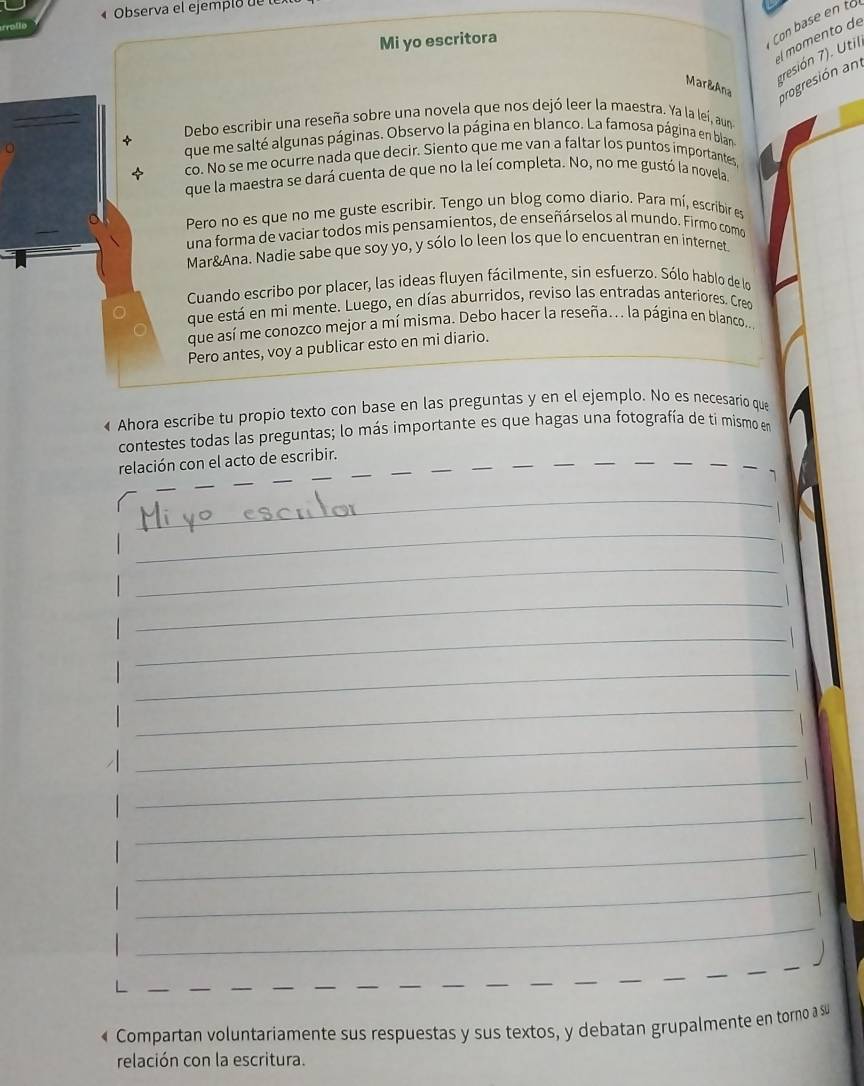 rrollo
Observa el ejemplo de
Mi yo escritora
Mar&Ana
Debo escribir una reseña sobre una novela que nos dejó leer la maestra. Ya la leí, aun-
que me salté algunas páginas. Observo la página en blanco. La famosa página en blan-
co. No se me ocurre nada que decir. Siento que me van a faltar los puntos importantes,
que la maestra se dará cuenta de que no la leí completa. No, no me gustó la novela.
Pero no es que no me guste escribir. Tengo un blog como diario. Para mí, escribir es
una forma de vaciar todos mis pensamientos, de enseñárselos al mundo. Firmo como
Mar&Ana. Nadie sabe que soy yo, y sólo lo leen los que lo encuentran en internet.
Cuando escribo por placer, las ideas fluyen fácilmente, sin esfuerzo. Sólo hablo de lo
que está en mi mente. Luego, en días aburridos, reviso las entradas anteriores. Creo
que así me conozco mejor a mí misma. Debo hacer la reseña... la página en blanco...
Pero antes, voy a publicar esto en mi diario.
Ahora escribe tu propio texto con base en las preguntas y en el ejemplo. No es necesario que
contestes todas las preguntas; lo más importante es que hagas una fotografía de ti mismo en
relación con el acto de escribir.
Mi yo escritor
Compartan voluntariamente sus respuestas y sus textos, y debatan grupalmente en torno a su
relación con la escritura.
Con base en to
el momento de
gresión 7). Utili
progresión ant